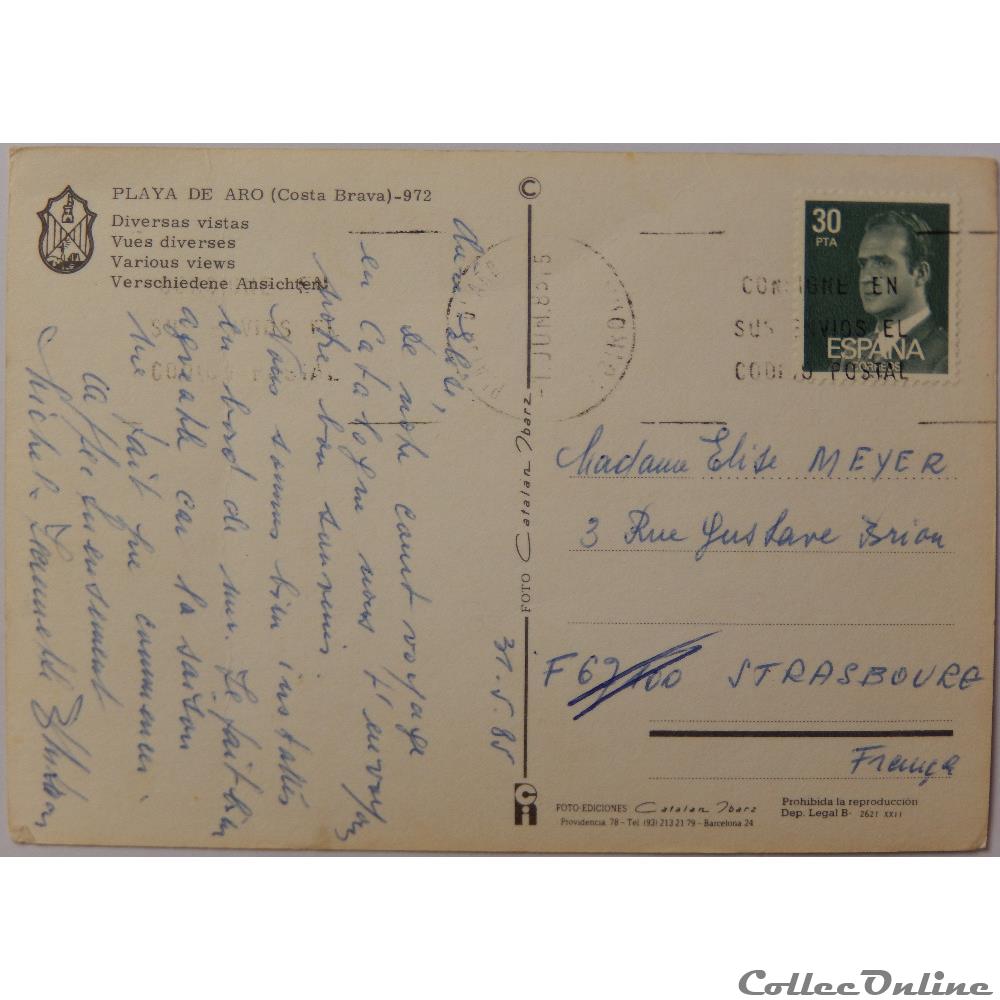 PLAYA DE ARO (Costa Brava)-972
Diversas vistas
Vues diverses
Various views
Verschiedene Ansichten
©
FOTO Catalan Ibarz
30
PTA
ESPAÑA
CORREOS
CONSIGNE EN
SUS ENVIOS EL
CODIGO POSTAL
CONSIGNE EN
SUS ENVIOS EL
CODIGO POSTAL
-1.JUN.85 15
31.5.85
De notre court voyage
en Catalogne nous t'envoyons
notre bon souvenir
Nous sommes bien installés
au bord de mer. Il fait bien
agréable car la saison
ne fait que commencer
Affectueusement
Madame Elise MEYER
3 Rue Gustave Brion
F 67100 STRASBOURG
France
FOTO-EDICIONES Catalan Ibarz
Providencia, 78 - Tel. (93) 213 21 79 - Barcelona 24
Prohibida la reproducción
Dep. Legal B- 2621 XXII
CollecOnline